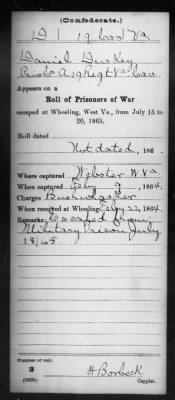 (Confederate.)
D | 19 Cav | Va
Daniel Duskey
Priv Co. A, 19 Regt Va. Cav.
Appears on a
Roll of Prisoners of War
escaped at Wheeling, West Va., from July 15 to
20, 1865.
Roll dated
Not dated, 186 .
Where captured Webster W. Va
When captured Feby 9, 1864
Charges Bushwhacker
When received at Wheeling Feby 22, 1864.
Remarks: Escaped from
Military Prison July
18/65
Number of roll:
3
H Borbeck
Copyist.